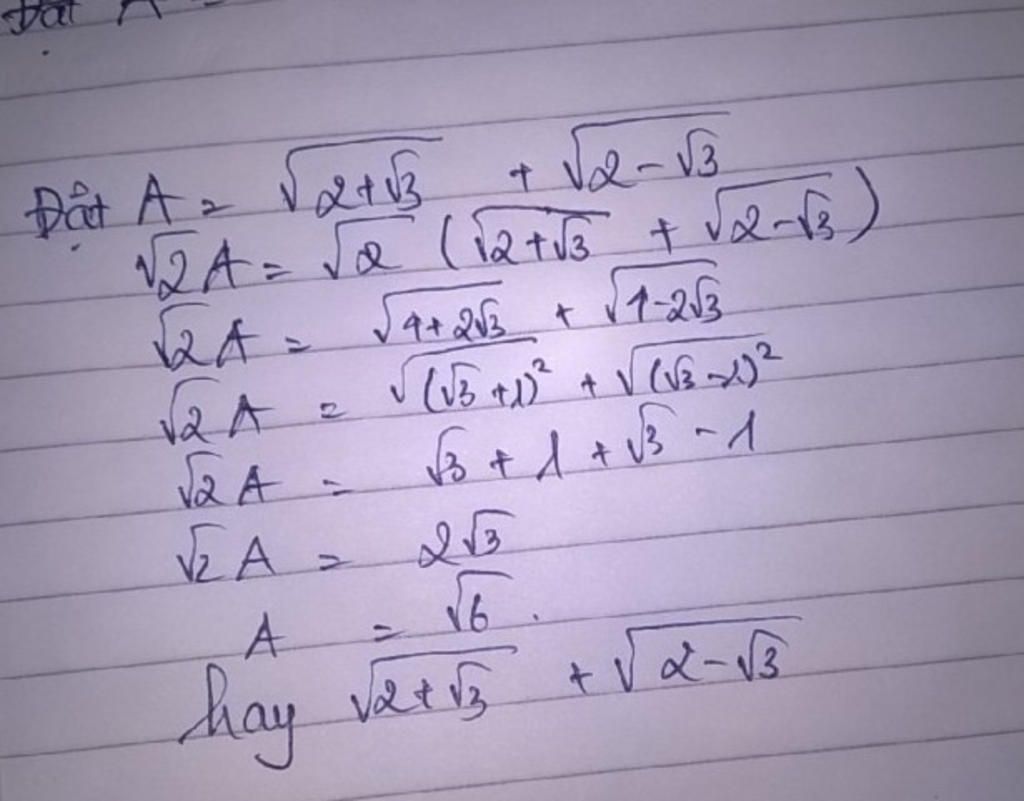 Đặt A
Đặt A = √(2+√3) + √(2-√3)
√2 A = √2 (√(2+√3) + √(2-√3))
√2 A = √(4+2√3) + √(4-2√3)
√2 A = √((√3+1)²) + √((√3-1)²)
√2 A = √3 + 1 + √3 - 1
√2 A = 2√3
A = √6.
hay √(2+√3) + √(2-√3)